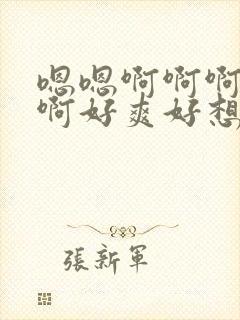 嗯嗯啊啊啊
啊好爽好想
張新軍